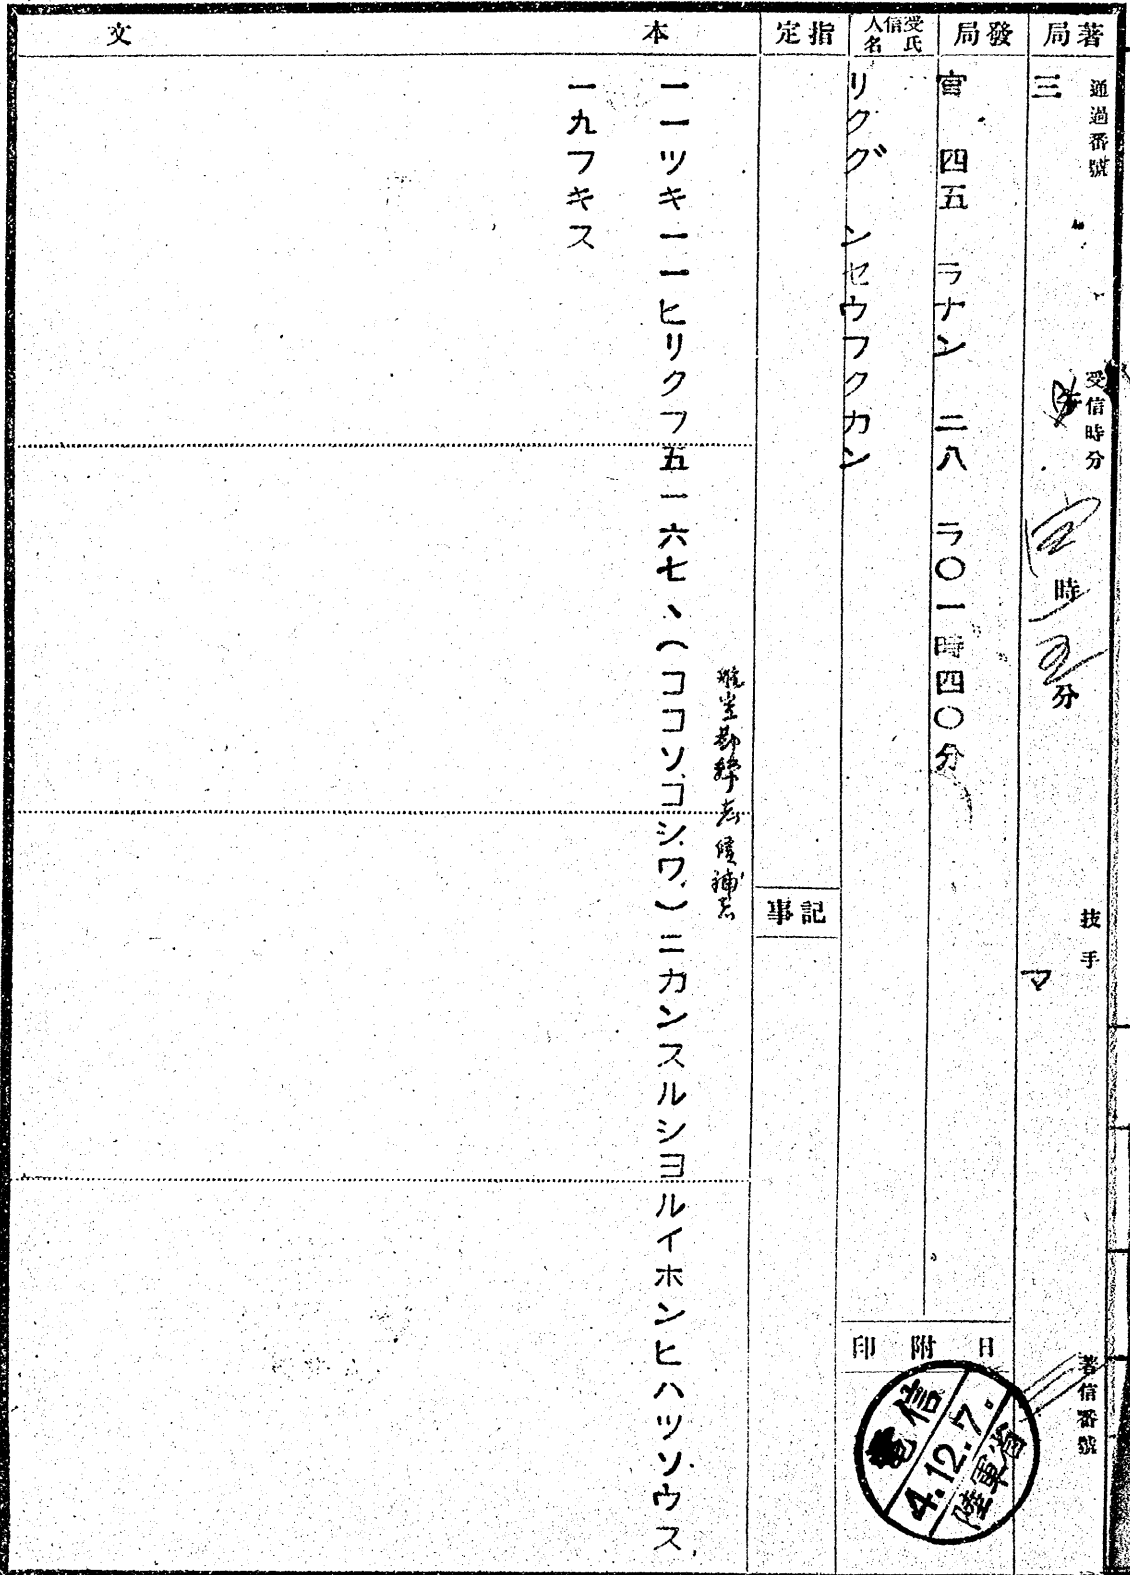 著局
通過番號
三
受信時分
時
分
技手
マ
著信番號
發局
官 四五 ラナン 二八 ラ〇一時四〇分
日附印
電信
4.12.7.
陸軍省
受信人氏名
リクグンセウフクカン
指定
記事
本文
一一ツキ一一ヒリクフ五一六七、(ココソ、コシワ、)ニカンスルシヨルイホンヒハツソウス
一九フキス